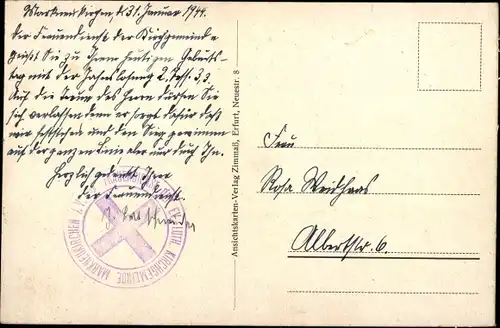 Markneukirchen d. 31. Januar 1944.
Der Frauendienst der Kirchgemeinde
grüßt Sie zu Ihrem heutigen Geburts-
tag mit der Jahreslosung 2. Thess. 3.3.
Auf die Treue des Herrn dürfen Sie
sich verlassen denn er sorgt dafür daß
wir feststehen und den Sieg gewinnen
auf der ganzen Linie aber nur durch Ihn.
Herzlich gedenkt Ihrer
der Frauendienst.
EV. LUTH. KIRCHGEMEINDE MARKNEUKIRCHEN
Ansichtskarten-Verlag Zimmaß, Erfurt, Neuestr. 8
Frau
Rosa Weidhaas
Albertstr. 6.